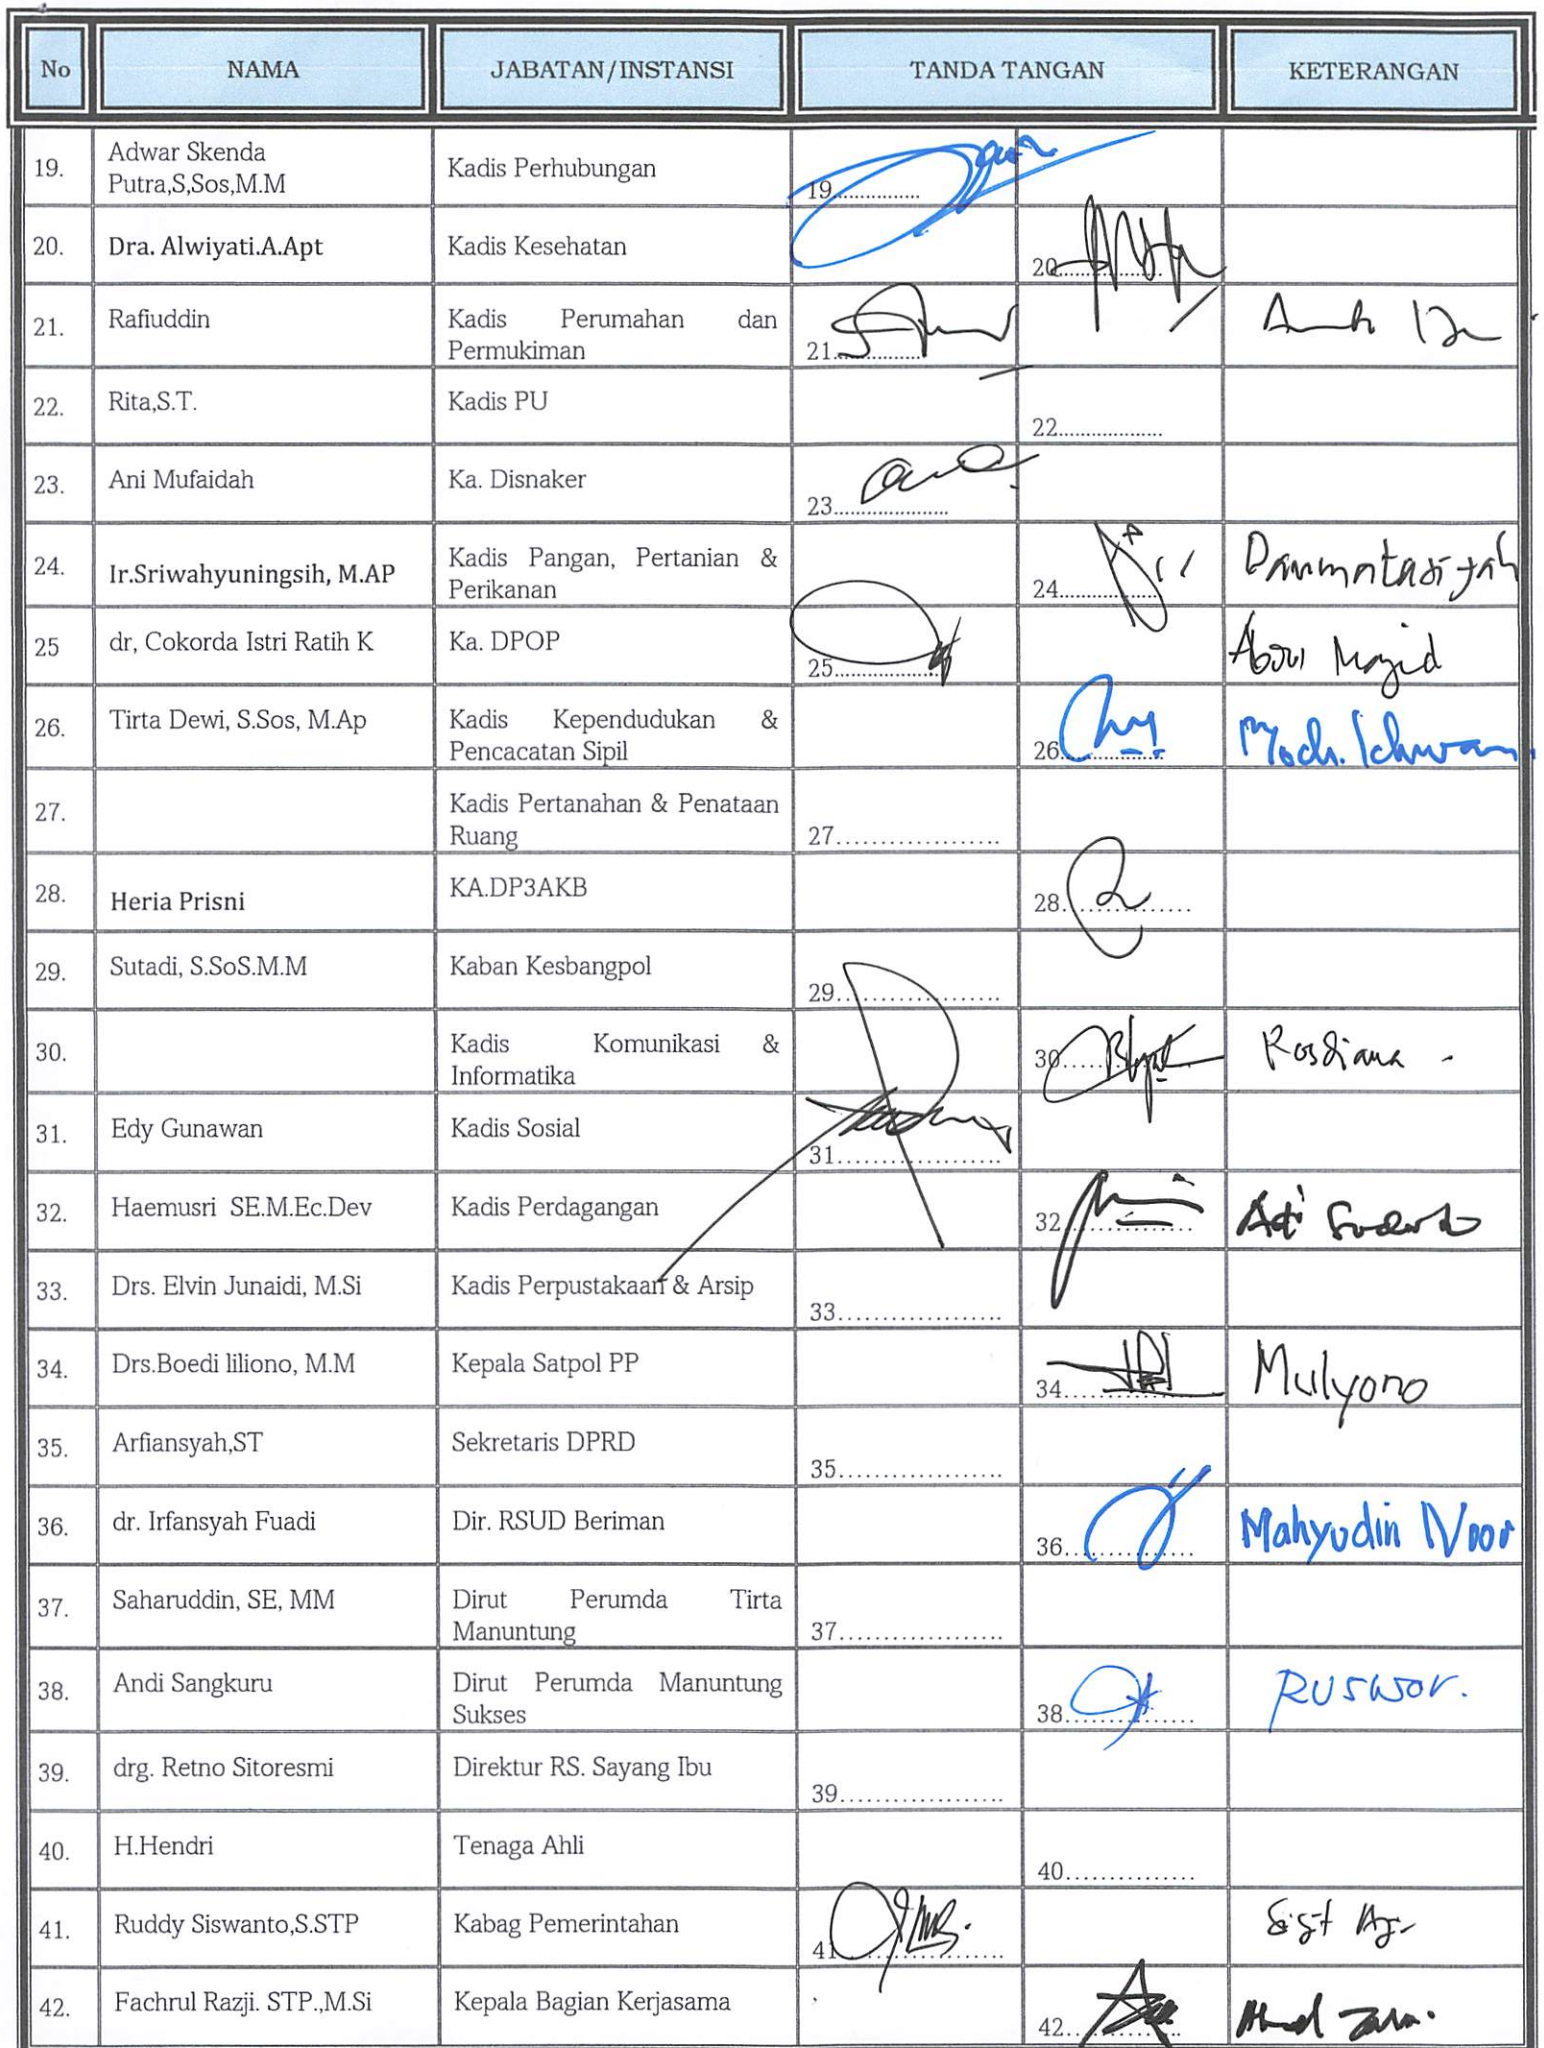 No NAMA JABATAN/INSTANSI TANDA TANGAN KETERANGAN
19. Adwar Skenda
Putra,S,Sos,M.M Kadis Perhubungan 19...............
20. Dra. Alwiyati.A.Apt Kadis Kesehatan 20...................
21. Rafiuddin Kadis Perumahan dan
Permukiman 21...............
22. Rita,S.T. Kadis PU 22...................
23. Ani Mufaidah Ka. Disnaker 23....................
24. Ir.Sriwahyuningsih, M.AP Kadis Pangan, Pertanian &
Perikanan 24...................
25 dr, Cokorda Istri Ratih K Ka. DPOP 25.................... Majid
26. Tirta Dewi, S.Sos, M.Ap Kadis Kependudukan &
Pencacatan Sipil 26................... Moch. Ichwan
27. Kadis Pertanahan & Penataan
Ruang 27...................
28. Heria Prisni KA.DP3AKB 28...............
29. Sutadi, S.SoS.M.M Kaban Kesbangpol 29...................
30. Kadis Komunikasi &
Informatika 30............... Rosdiana
31. Edy Gunawan Kadis Sosial 31...................
32. Haemusri SE.M.Ec.Dev Kadis Perdagangan 32...............
33. Drs. Elvin Junaidi, M.Si Kadis Perpustakaan & Arsip 33...................
34. Drs.Boedi liliono, M.M Kepala Satpol PP 34............... Mulyono
35. Arfiansyah,ST Sekretaris DPRD 35...................
36. dr. Irfansyah Fuadi Dir. RSUD Beriman 36............... Mahyudin Noor
37. Saharuddin, SE, MM Dirut Perumda Tirta
Manuntung 37...................
38. Andi Sangkuru Dirut Perumda Manuntung
Sukses 38...............
39. drg. Retno Sitoresmi Direktur RS. Sayang Ibu 39...................
40. H.Hendri Tenaga Ahli 40...............
41. Ruddy Siswanto,S.STP Kabag Pemerintahan 41...................
42. Fachrul Razji. STP.,M.Si Kepala Bagian Kerjasama 42...............